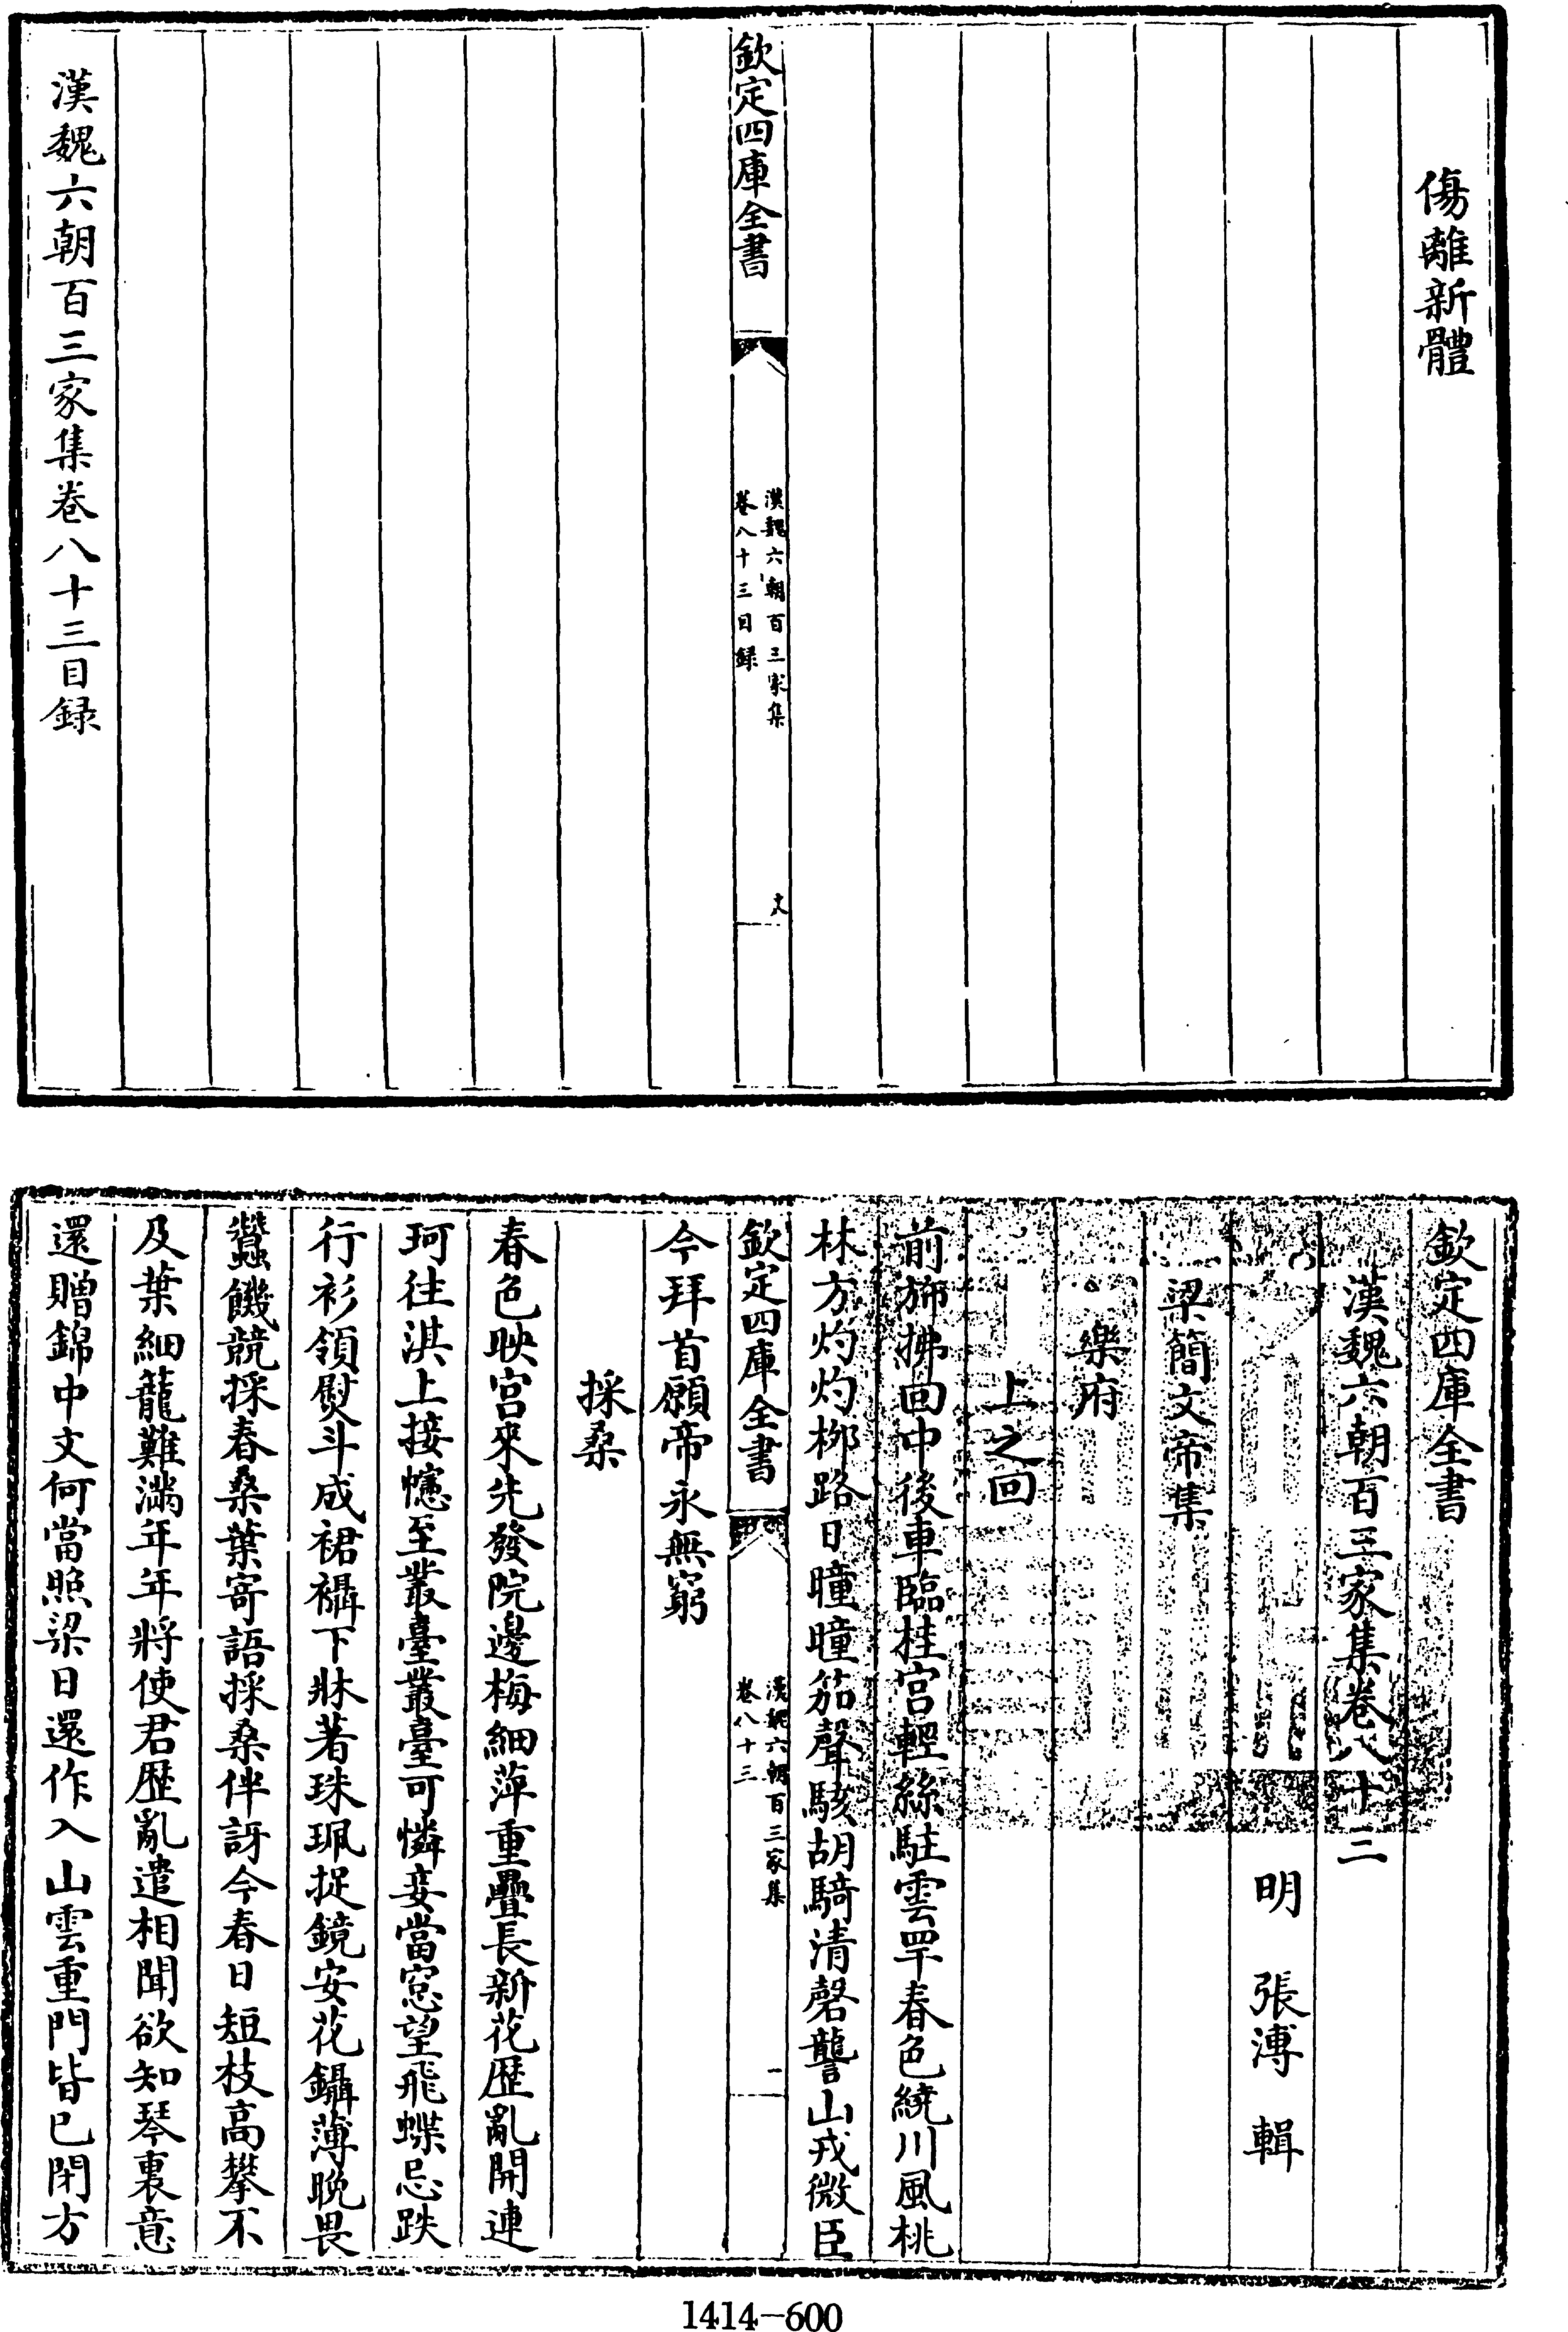 傷離新體
欽定四庫全書
漢魏六朝百三家集
卷八十三目録
漢魏六朝百三家集卷八十三目録
欽定四庫全書
漢魏六朝百三家集卷八十三
明 張溥 輯
梁簡文帝集
樂府
上之回
前斾拂回中後車臨桂宫輕絲駐雲罕春色繞川風桃
林方灼灼栁路日曈曈笳聲駭胡騎清磬讋山戎微臣
欽定四庫全書
漢魏六朝百三家集
卷八十三
一
今拜首願帝永無窮
採桑
春色映宫來先發院邊梅細萍重疊長新花歴亂開連
珂往淇上接幰至叢臺叢臺可憐妾當窓望飛蝶忌趺
行衫領熨斗成裙襵下牀著珠珮捉鏡安花鑷薄晩畏
蠶饑競採春桑葉寄語採桑伴訝今春日短枝高攀不
及葉細籠難滿年年將使君歴亂遣相聞欲知琴裏意
還贈錦中文何當照梁日還作入山雲重門皆已閉方
1414-600